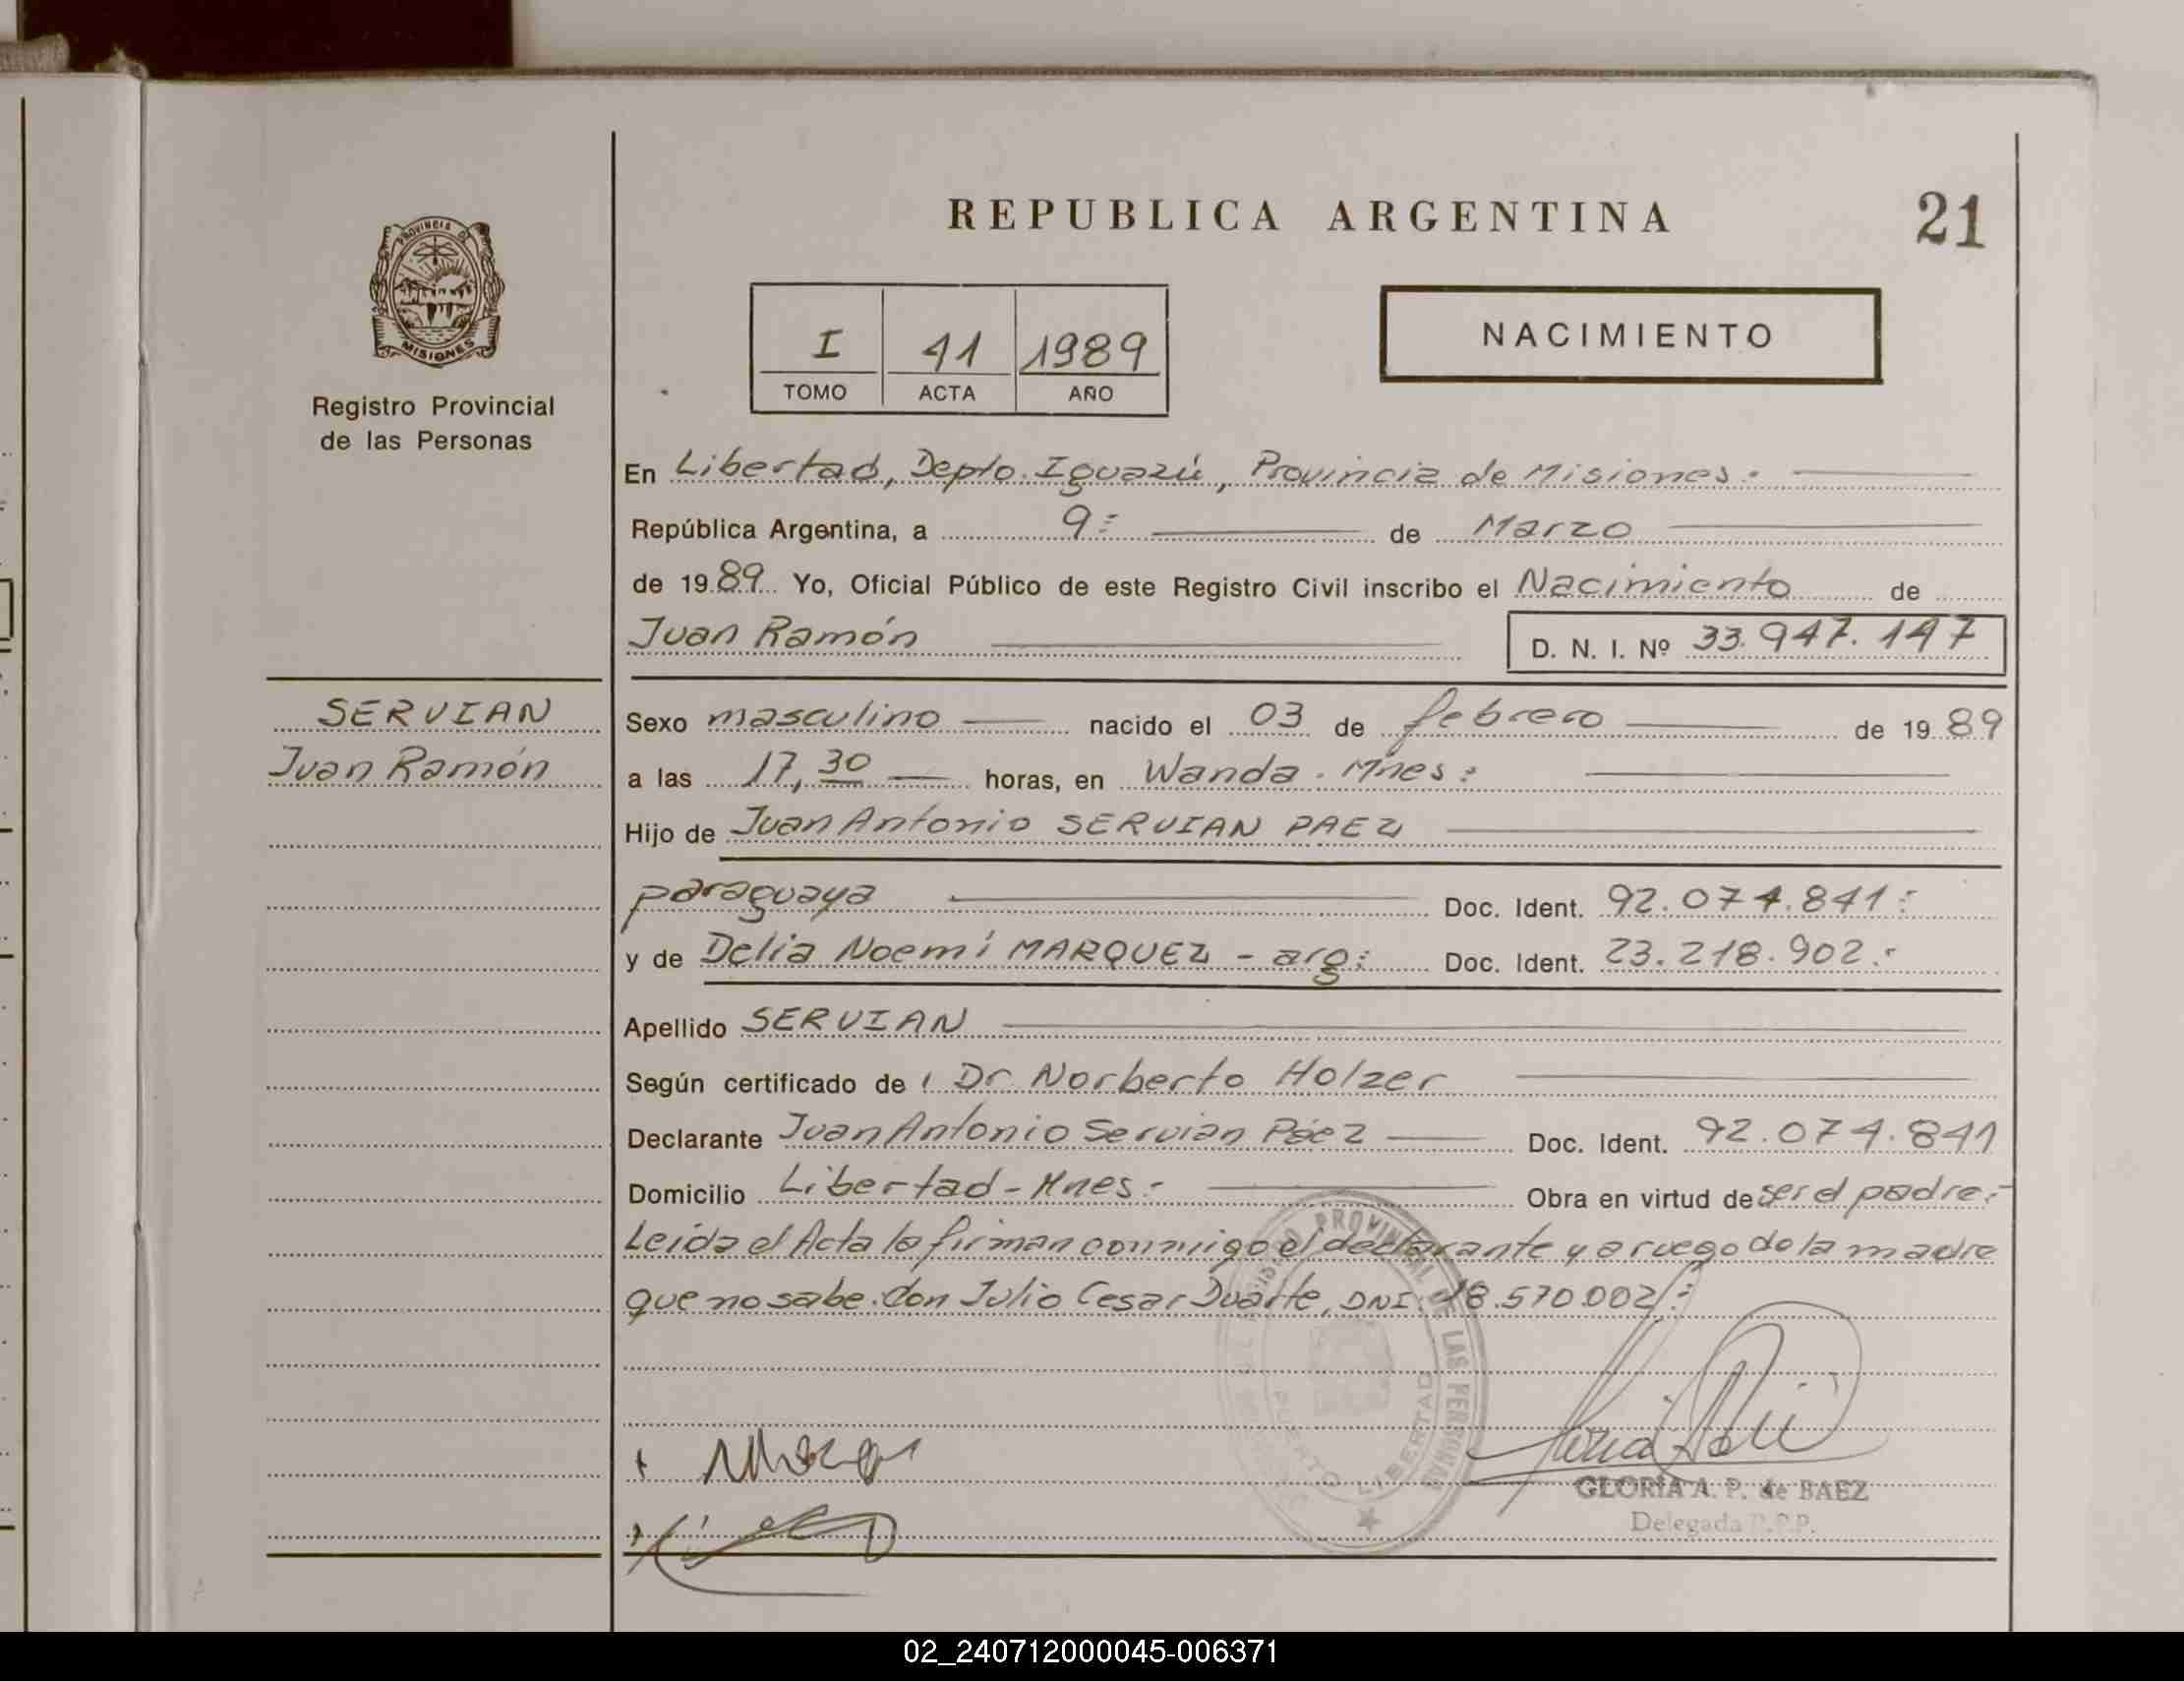 REPUBLICA ARGENTINA
21
PROVINCIA DE
MISIONES
Registro Provincial
de las Personas
I 11 1989
TOMO ACTA AÑO
NACIMIENTO
En Libertad, Depto. Iguazú, Provincia de Misiones.-
República Argentina, a 9.- de Marzo
de 1989 Yo, Oficial Público de este Registro Civil inscribo el Nacimiento de
Juan Ramón D. N. I. Nº 33.947.147
SERVIAN
Juan Ramón
Sexo masculino nacido el 03 de febrero de 1989
a las 17,30 horas, en Wanda. Mnes:
Hijo de Juan Antonio SERVIAN PAEZ
paraguaya Doc. Ident. 92.074.841:
y de Delia Noemí MARQUEZ - arg: Doc. Ident. 23.218.902.-
Apellido SERVIAN
Según certificado de Dr Norberto Holzer
Declarante Juan Antonio Servian Páez Doc. Ident. 92.074.841
Domicilio Libertad - Mnes.- Obra en virtud de ser el padre.-
Leida el Acta la firman conmigo el declarante y a ruego de la madre
que no sabe. Don Julio Cesar Duarte, DNI. 18.570.002/:
PROVINCIAL DE LAS PERSONAS
LIBERTAD
GLORIA A. P. de BAEZ
Delegada R.P.P.
02_240712000045-006371